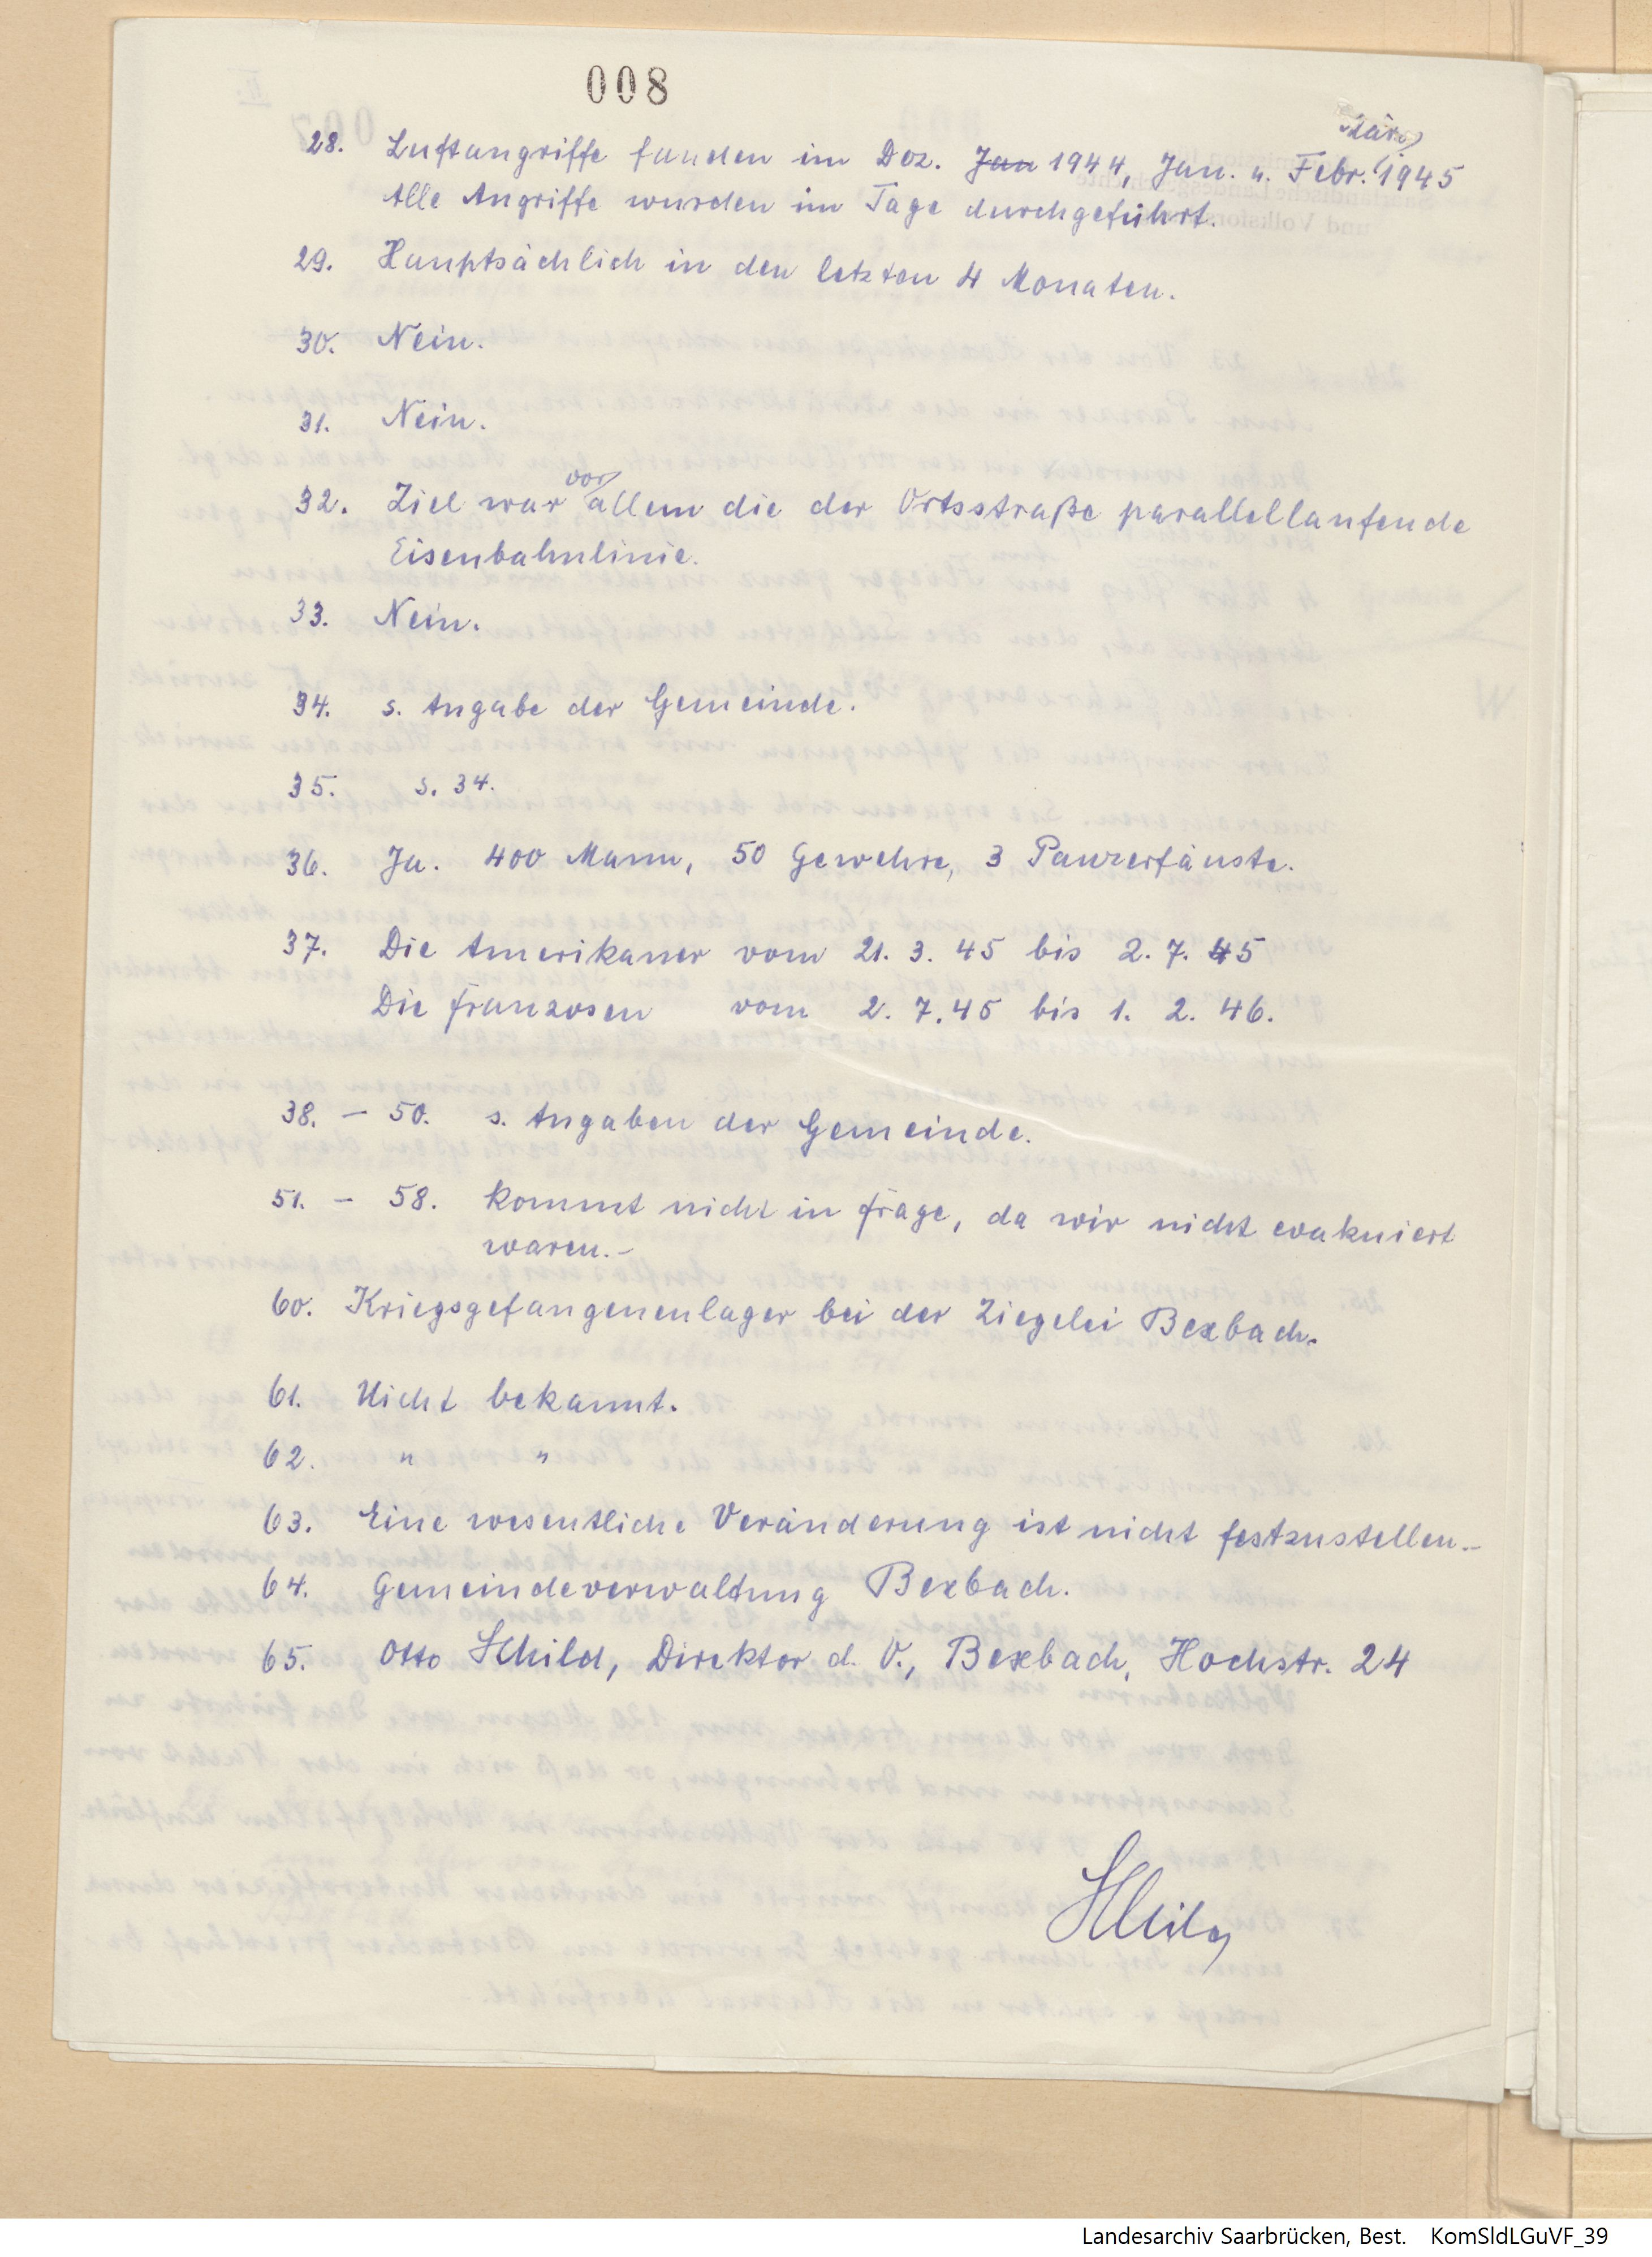 008
März
28. Luftangriffe fanden im Dez. Jan 1944, Jan. u. Febr. 1945
Alle Angriffe wurden im Tage durchgeführt.
29. Hauptsächlich in den letzten 4 Monaten.
30. Nein.
31. Nein.
32. Ziel war vor allem die der Ortsstraße parallellaufende
Eisenbahnlinie.
33. Nein.
34. s. Angabe der Gemeinde.
35. s. 34.
36. Ja. 400 Mann, 50 Gewehre, 3 Panzerfäuste.
37. Die Amerikaner vom 21. 3. 45 bis 2. 7. 45
Die Franzosen vom 2. 7. 45 bis 1. 2. 46.
38. – 50. s. Angaben der Gemeinde.
51. – 58. Kommt nicht in Frage, da wir nicht evakuiert
waren.–
60. Kriegsgefangenenlager bei der Ziegelei Bexbach.
61. Nicht bekannt.
62. " "
63. Eine wesentliche Veränderung ist nicht festzustellen.–
64. Gemeindeverwaltung Bexbach.
65. Otto Schild, Direktor d. V., Bexbach, Hochstr. 24
Schild
Landesarchiv Saarbrücken, Best. KomSldLGuVF_39